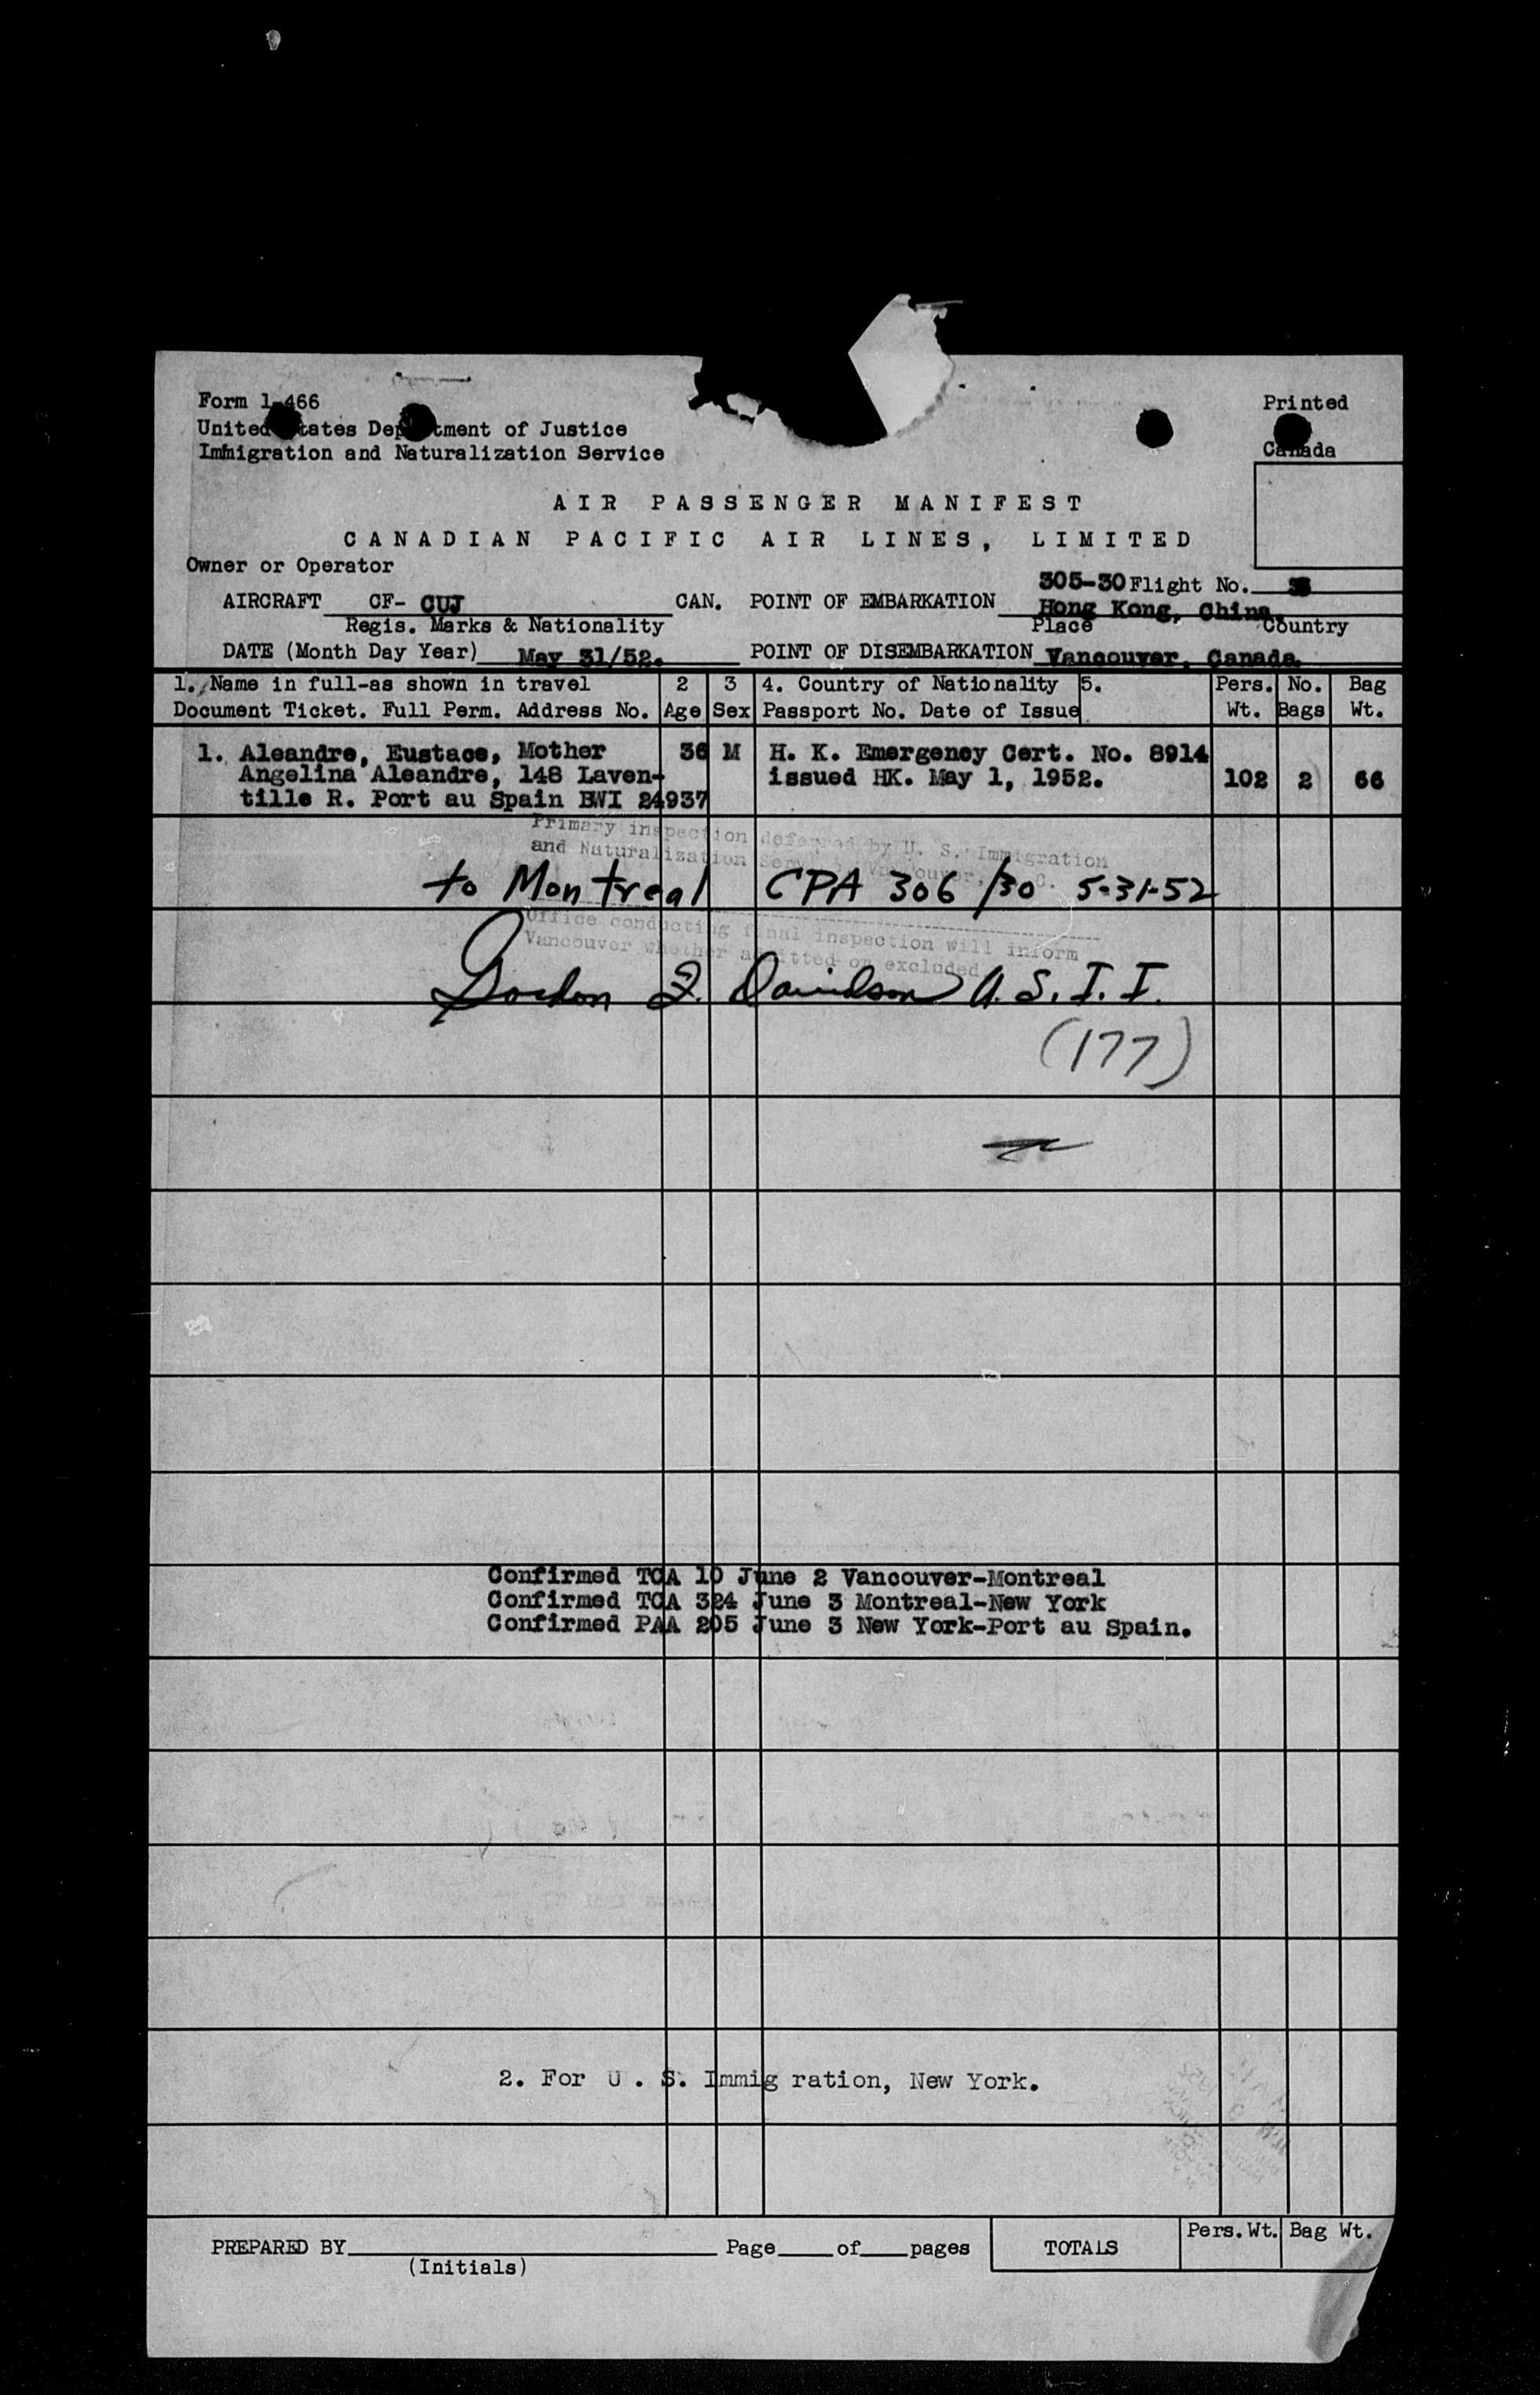 Form 1-466
Printed
United States Department of Justice
Canada
Immigration and Naturalization Service
AIR PASSENGER MANIFEST
CANADIAN PACIFIC AIR LINES, LIMITED
Owner or Operator
305-30 Flight No.
AIRCRAFT CF- CUJ CAN. POINT OF EMBARKATION Hong Kong, China,
Regis. Marks & Nationality Place Country
DATE (Month Day Year) May 31/52. POINT OF DISEMBARKATION Vancouver, Canada.
1. Name in full-as shown in travel 2 3 4. Country of Nationality 5. Pers. No. Bag
Document Ticket. Full Perm. Address No. Age Sex Passport No. Date of Issue Wt. Bags Wt.
1. Aleandre, Eustace, Mother 36 M H. K. Emergency Cert. No. 8914
Angelina Aleandre, 148 Laven- issued HK. May 1, 1952. 102 2 66
tille R. Port au Spain BWI 24937
Primary inspection deferred by U. S. Immigration
and Naturalization Service, Vancouver, B.C.
to Montreal CPA 306/30 5-31-52
Office conducting final inspection will inform
Vancouver whether admitted or excluded
Gordon F. Davidson A.S.I.I.
(177)
Confirmed TCA 10 June 2 Vancouver-Montreal
Confirmed TCA 324 June 3 Montreal-New York
Confirmed PAA 205 June 3 New York-Port au Spain.
2. For U . S. Immig ration, New York.
PREPARED BY Page of pages TOTALS Pers.Wt. Bag Wt.
(Initials)